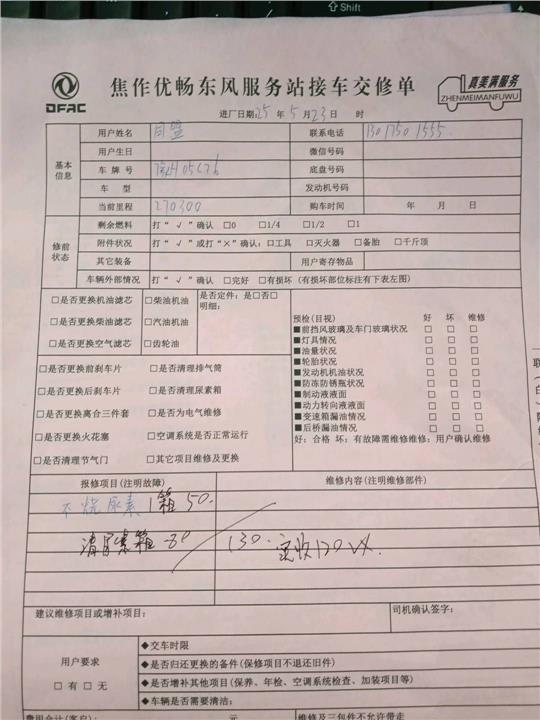 Shift
DFAC
焦作优畅东风服务站接车交修单
真美满服务
ZHENMEIMANFUWU
进厂日期:25年5月23日 时
用户姓名 同盟 联系电话
基本信息
用户生日 微信号码
车牌号 05676 底盘号码
车型 发动机号码
当前里程 270300 购车时间 年 月 日
修前状态
剩余燃料 打“√”确认 □0 □1/4 □1/2 □1
附件状况 打“√”或打“×”确认:□工具 □灭火器 □备胎 □千斤顶
其它装备 用户寄存物品
车辆外部情况 打“√”确认 □完好 □有损坏(有损坏部位标注有下表左图)
□是否更换机油滤芯 □柴油机油 是否定件:是□否□
明细:
□是否更换柴油滤芯 □汽油机油
□是否更换空气滤芯 □齿轮油
预检(目视) 好 坏 维修
■前挡风玻璃及车门玻璃状况 □ □ □
■灯具情况 □ □ □
■油量状况 □ □ □
■轮胎状况 □ □ □
■发动机机油状况 □ □ □
■防冻防锈瓶状况 □ □ □
■制动液液面 □ □ □
■动力转向液液面 □ □ □
■变速箱漏油情况 □ □ □
■后桥漏油情况 □ □ □
好:合格 坏:有故障需维修维修:用户确认维修
□是否更换前刹车片 □是否清理排气筒
□是否更换后刹车片 □是否清理尿素箱
□是否更换离合三件套 □是否为电气维修
□是否更换火花塞 □空调系统是否正常运行
□是否清理节气门 □其它项目维修及更换
报修项目(注明故障) 维修内容(注明维修部件)
不烧尿素1箱 50.
清尿素箱-80 130. 实收120
建议维修项目或增补项目: 司机确认签字:
用户要求
□有 □无
◆交车时限
◆是否归还更换的备件(保修项目不退还旧件)
◆是否增补其他项目(保养、年检、空调系统检查、加装项目等)
◆车辆是否需要清洁:
费用合计(客户): 元 维修及三包件不允许带走
联
白